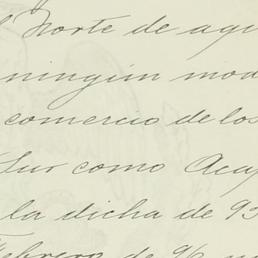 Norte de aqu
ningún mod
comercio de los
Sur como Aca
la dicha de 93
Febrero de 96